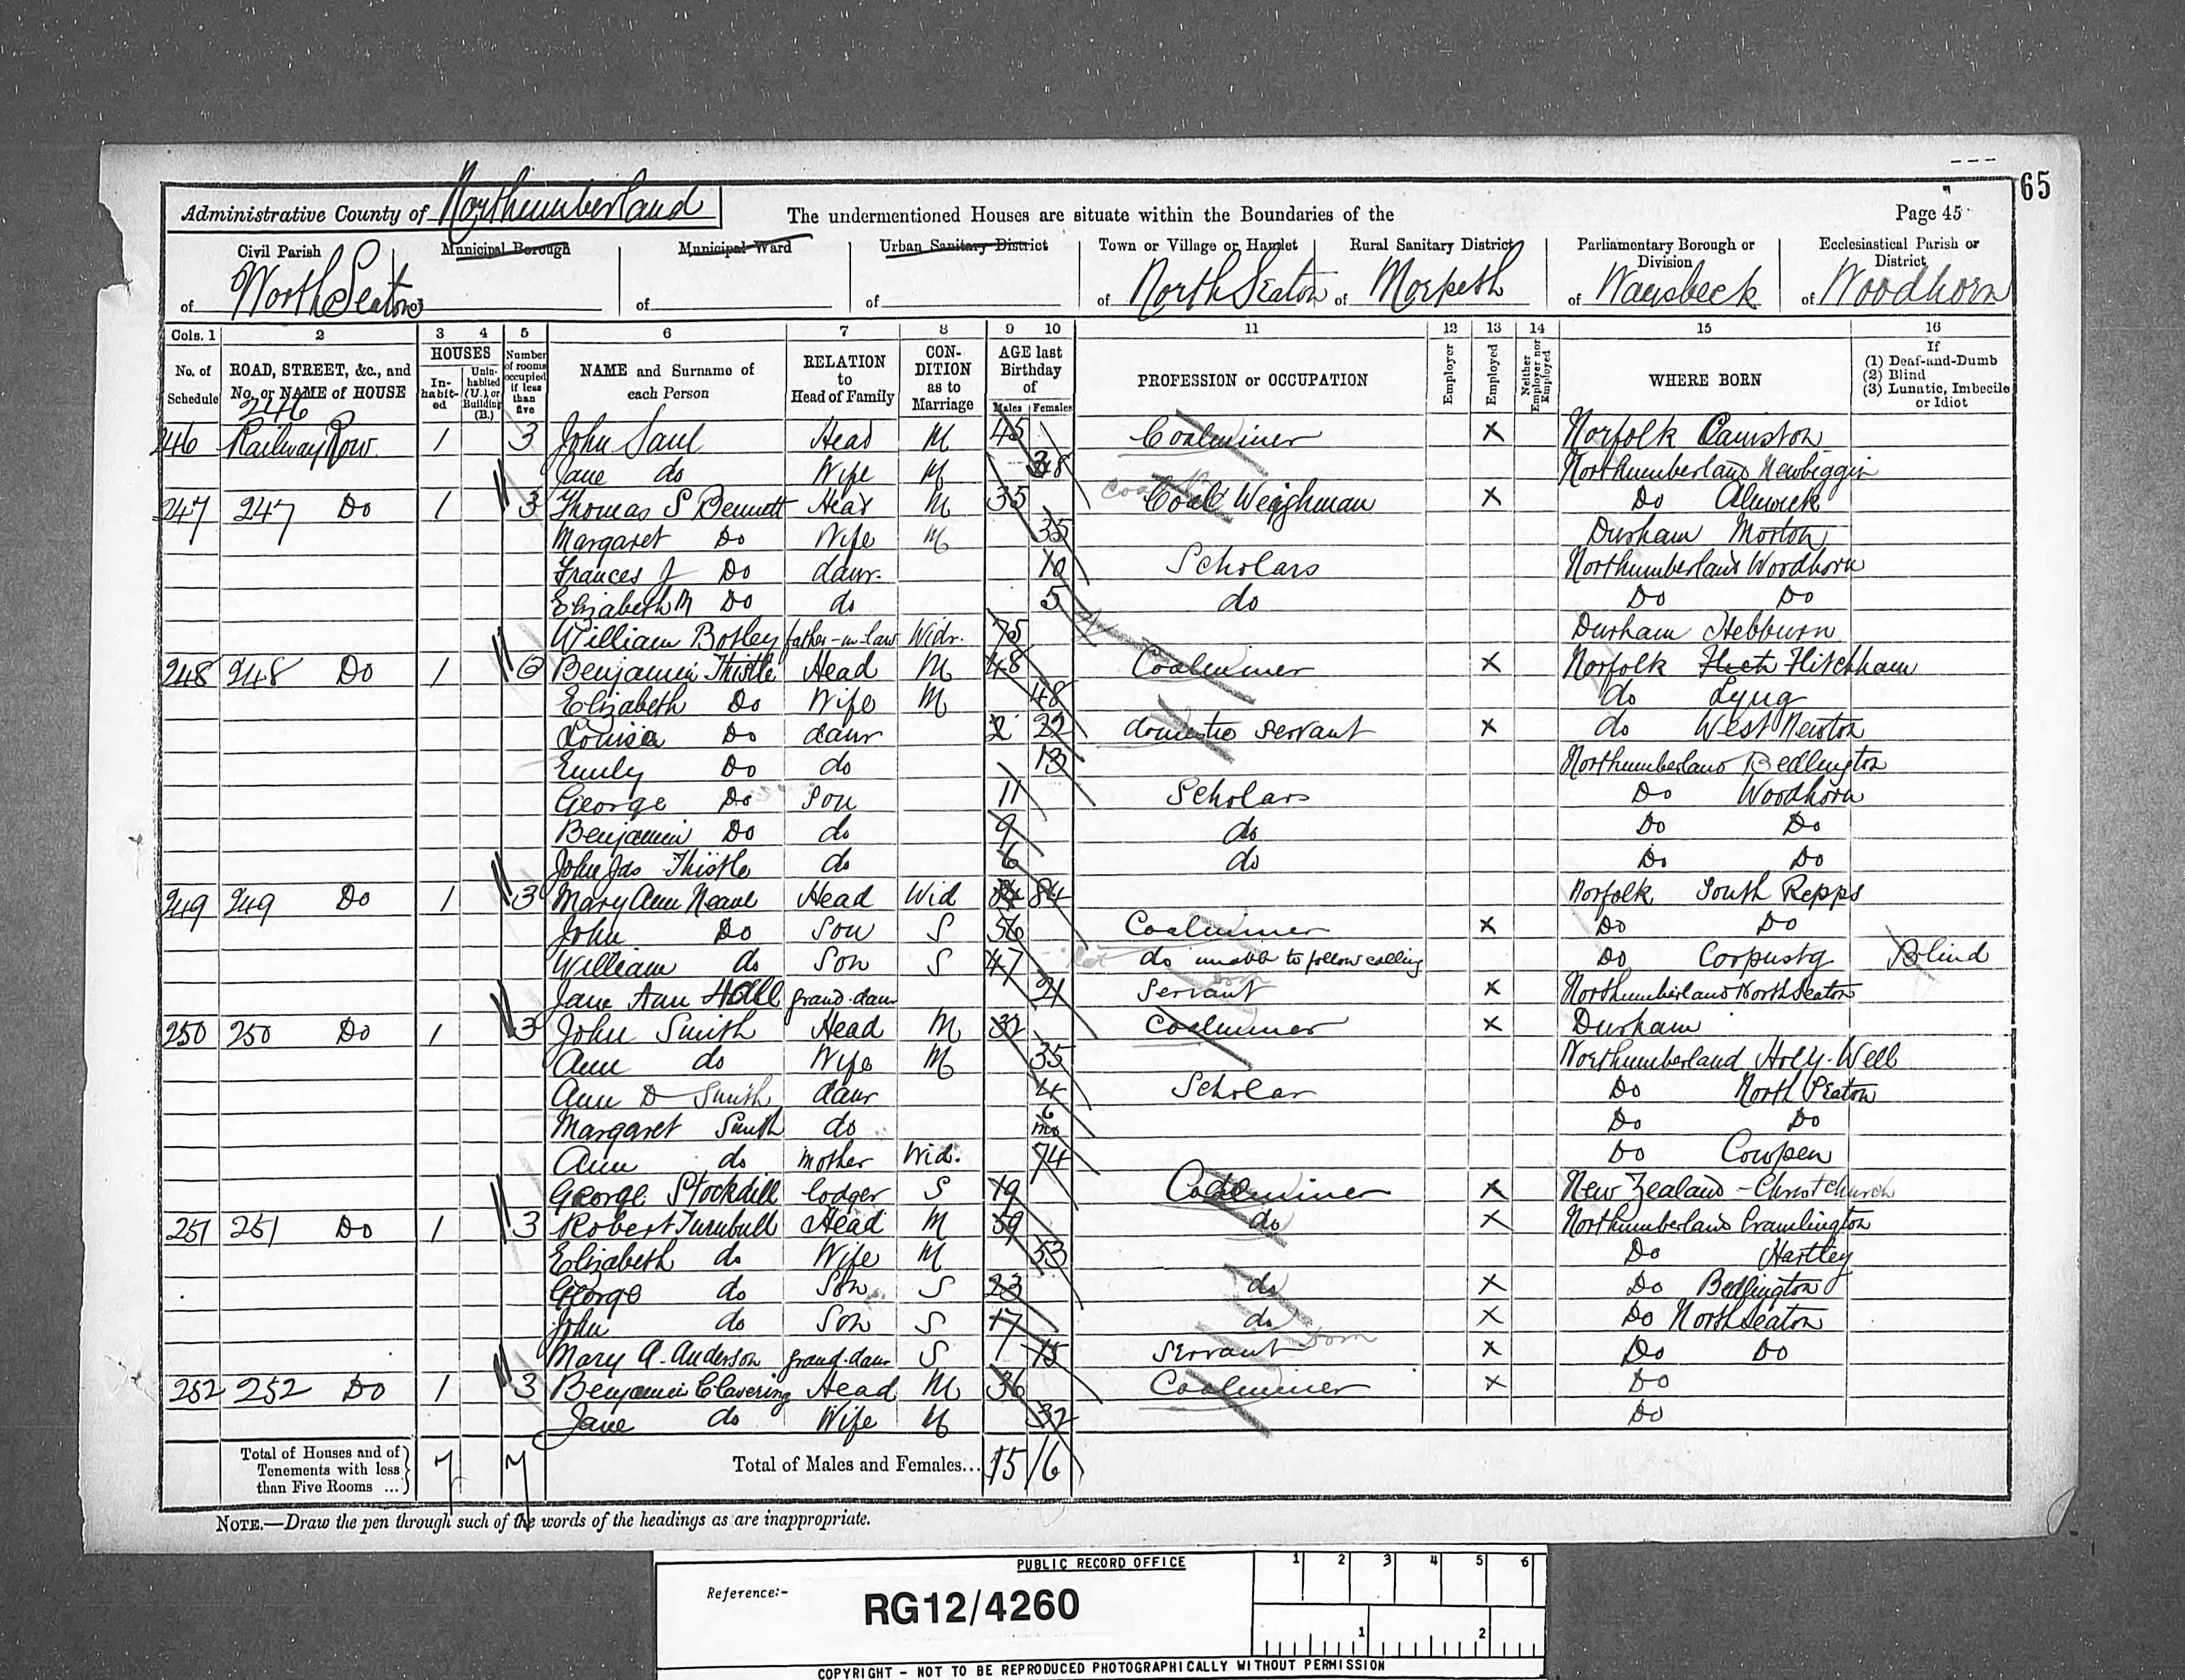 65
Administrative County of Northumberland The undermentioned Houses are situate within the Boundaries of the Page 45
Civil Parish Municipal Borough Municipal Ward Urban Sanitary District Town or Village or Hamlet Rural Sanitary District Parliamentary Borough or Division Ecclesiastical Parish or District
of North Seaton of of of North Seaton of Morpeth of Wansbeck of Woodhorn
Cols. 1 2 3 4 5 6 7 8 9 10 11 12 13 14 15 16
No. of Schedule ROAD, STREET, &c., and No. or NAME of HOUSE HOUSES Inhabited Uninhabited (U.), or Building (B.) Number of rooms occupied if less than five NAME and Surname of each Person RELATION to Head of Family CONDITION as to Marriage AGE last Birthday of Males Females PROFESSION or OCCUPATION Employer Employed Neither Employer nor Employed WHERE BORN If (1) Deaf-and-Dumb (2) Blind (3) Lunatic, Imbecile or Idiot
246
246 Railway Row 1 3 John Saul Head M 45 Coalminer X Norfolk Cawston
Jane do Wife M Northumberland Newbiggin
247 247 Do 1 3 Thomas S Bennett Head M 35 Coal Weighman X Do Alnwick
Margaret Do Wife M 35 Durham Morton
Frances J Do daur. 10 Scholars Northumberland Woodhorn
Elizabeth M Do do 5 do Do Do
William Botley father-in-law Widr. 75 Durham Hebburn
248 248 Do 1 Benjamin Thistle Head M 48 Coalminer X Norfolk Hitchham
Elizabeth Do Wife M 48 do Lyng
Louisa Do daur 2 22 domestic servant X do West Newton
Emily Do do 13 Northumberland Bedlington
George Do Son 11 Scholars Do Woodhorn
Benjamin Do do 9 do Do Do
John Jas Thistle do 6 do Do Do
249 249 Do 1 3 Mary Ann Neave Head Wid 84 84 Norfolk South Repps
John Do Son S 56 Coalminer X Do Do
William do Son S 47 do unable to follow calling Do Corpusty Blind
Jane Ann Hall grand-daur 21 Servant X Northumberland North Seaton
250 250 Do 1 3 John Smith Head M 32 Coalminer X Durham
Ann do Wife M 35 Northumberland Holy-Well
Ann D Smith daur 4 Scholar Do North Seaton
Margaret Smith do 6 mo Do Do
Ann do Mother Wid. 74 Do Cowpen
George Stockdill lodger S 19 Coalminer X New Zealand - Christchurch
251 251 Do 1 3 Robert Turnbull Head M 59 do X Northumberland Cramlington
Elizabeth do Wife M 53 Do Hartley
George do Son S 23 do X Do Bedlington
John do Son S 17 do X Do North Seaton
Mary A. Anderson grand-daur S 15 Servant Dom X Do Do
252 252 Do 1 3 Benjamin Clavering Head M 36 Coalminer X Do
Jane do Wife M 32 Do
Total of Houses and of Tenements with less than Five Rooms ... 7 7 Total of Males and Females... 15 16
NOTE.—Draw the pen through such of the words of the headings as are inappropriate.
PUBLIC RECORD OFFICE
Reference:-
RG12/4260
1 2 3 4 5 6
1 2
COPYRIGHT - NOT TO BE REPRODUCED PHOTOGRAPHICALLY WITHOUT PERMISSION